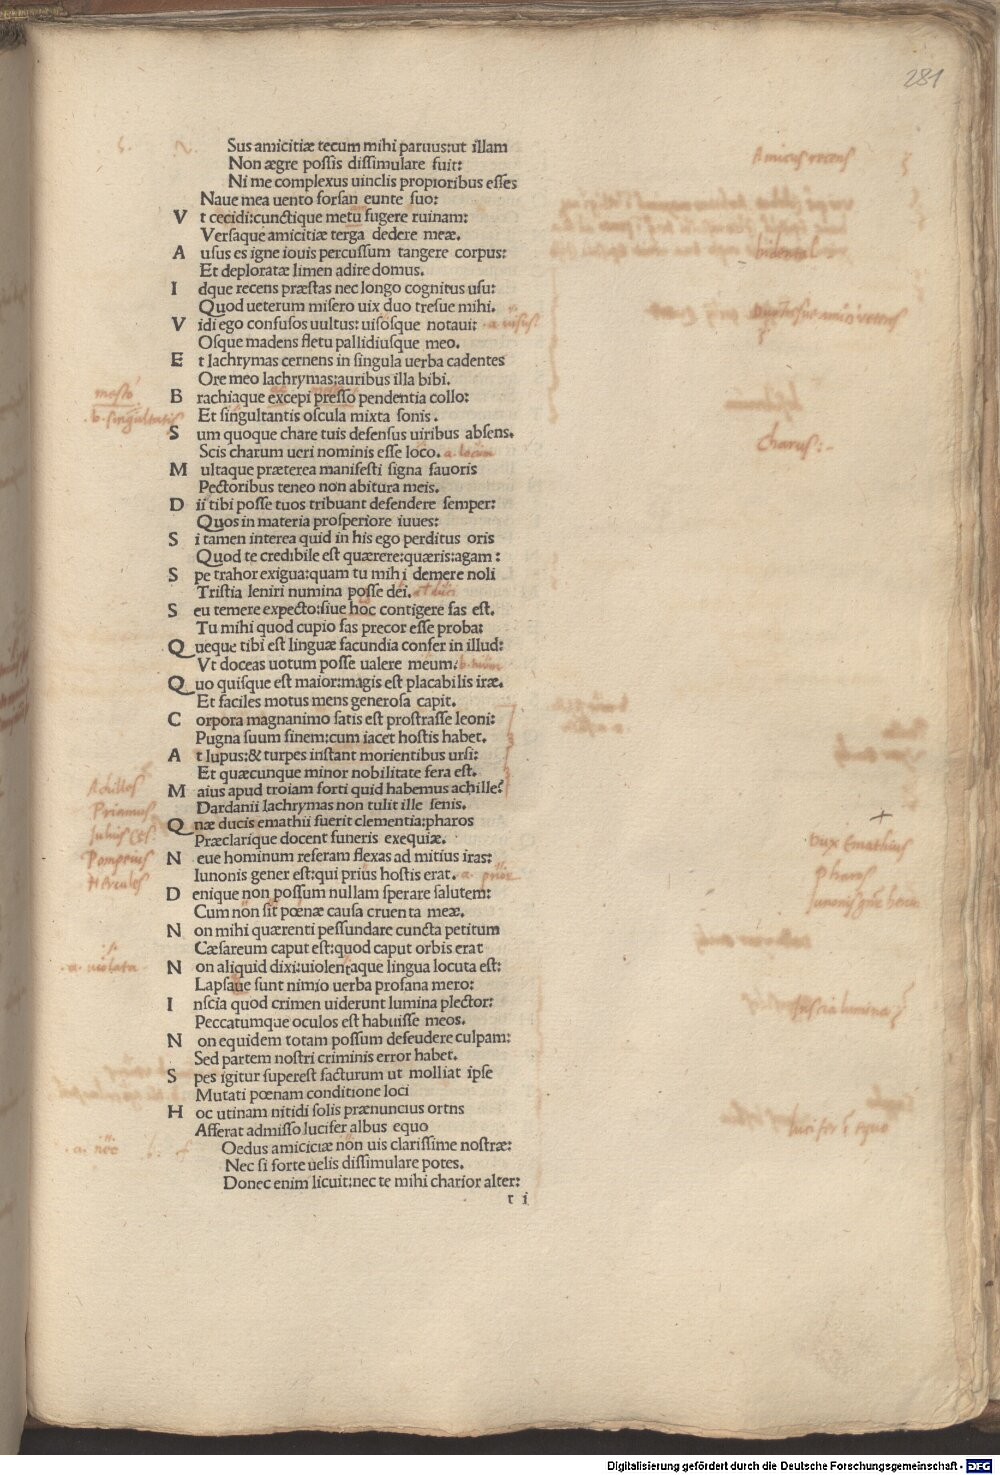 281
Sus amicitiæ tecum mihi paruus:ut illam
Non ægre possis dissimulare fuit:
Ni me complexus uinclis propioribus esses
Naue mea uento forsan eunte suo:
V t cecidi:cunctique metu fugere ruinam:
Versaque amicitiæ terga dedere meæ.
A usus es igne iouis percussum tangere corpus:
Et deploratæ limen adire domus.
I dque recens præstas nec longo cognitus usu:
Quod ueterum misero uix duo tresue mihi.
V idi ego confusos uultus: uisosque notaui: .a. uisus:
Osque madens fletu pallidiusque meo.
E t lachrymas cernens in singula uerba cadentes
Ore meo lachrymas:auribus illa bibi.
B rachiaque excepi presso pendentia collo:
Et singultantis oscula mixta sonis.
S um quoque chare tuis defensus uiribus absens.
Scis charum ueri nominis esse loco. a. locum
M ultaque præterea manifesti signa fauoris
Pectoribus teneo non abitura meis.
D ii tibi posse tuos tribuant defendere semper:
Quos in materia prosperiore iuues:
S i tamen interea quid in his ego perditus oris
Quod te credibile est quærere:quæris:agam:
S pe trahor exigua:quam tu mihi demere noli
Tristia leniri numina posse dei.
S eu temere expecto:siue hoc contigere fas est.
Tu mihi quod cupio fas precor esse proba:
Q ueque tibi est linguæ facundia confer in illud:
Vt doceas uotum posse ualere meum:
Q uo quisque est maior:magis est placabilis iræ.
Et faciles motus mens generosa capit.
C orpora magnanimo satis est prostrasse leoni:
Pugna suum finem:cum iacet hostis habet.
A t lupus:& turpes instant morientibus ursi:
Et quæcunque minor nobilitate fera est.
M aius apud troiam forti quid habemus achille?
Dardanii lachrymas non tulit ille senis.
Q næ ducis emathii fuerit clementia:pharos
Præclarique docent funeris exequiæ.
N eue hominum referam flexas ad mitius iras:
Iunonis gener est:qui prius hostis erat.
D enique non possum nullam sperare salutem:
Cum non sit pœnæ causa cruenta meæ.
N on mihi quærenti pessundare cuncta petitum
Cæsareum caput est:quod caput orbis erat
N on aliquid dixi:uiolentaque lingua locuta est:
Lapsaue sunt nimio uerba profana mero:
I nscia quod crimen uiderunt lumina plector:
Peccatumque oculos est habuisse meos.
N on equidem totam possum defeudere culpam:
Sed partem nostri criminis error habet.
S pes igitur superest facturum ut molliat ipse
Mutati pœnam conditione loci
H oc utinam nitidi solis prænuncius ortns
Afferat admisso lucifer albus equo
Oedus amiciciæ non uis clarissime nostræ:
Nec si forte uelis dissimulare potes.
Donec enim licuit:nec te mihi charior alter:
t i
Amicus recens
bidental
charus:-
mæsto
b. singultatis
Achilles
Priamus
Julius Ces:
Pompeius
Hercules
.a. uiolata
Dux Emathius
pharos
Inscia lumina
lucifer
equo
Digitalisierung gefördert durch die Deutsche Forschungsgemeinschaft - DFG